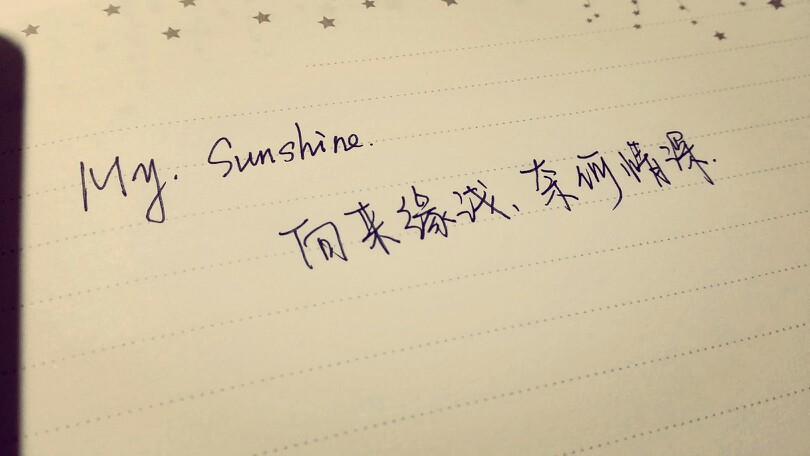 My. Sunshine.
向来缘浅、奈何情深.